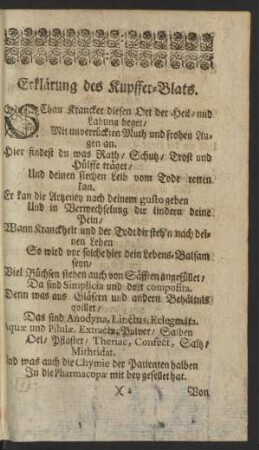 Erklärung des Kupffer-Blats.
SChau Krancker diesen Ort der Heil- und
Labung heget/
Mit unverrückten Muth und frohen Au-
gen an.
Hier findest du was Rath/ Schutz/ Trost und
Hülffe träget/
Und deinen siechen Leib vom Tode retten
kan.
Er kan die Artzeney nach deinem gusto geben
Und in Verwechselung dir lindern deine
Pein/
Wann Kranckheit und der Todt dir steh'n nach dei-
nen Leben
So wird vor solche hier dein Lebens-Balsam
seyn/
Viel Büchsen stehen auch von Säfften angefüllet/
Da sind Simplicia und dort composita.
Denn was aus Gläsern und andern Behältnis
qvillet/
Das sind Anodyna, Linctus, Eclegmata.
Aquæ und Pilulæ, Extracta, Pulver/ Salben
Oel/ Pflaster/ Theriac, Confect, Saltz/
Mithridat.
Und was auch die Chymie der Patienten halben
In die Pharmacopæ mit bey gesellet hat.
X 2 Von